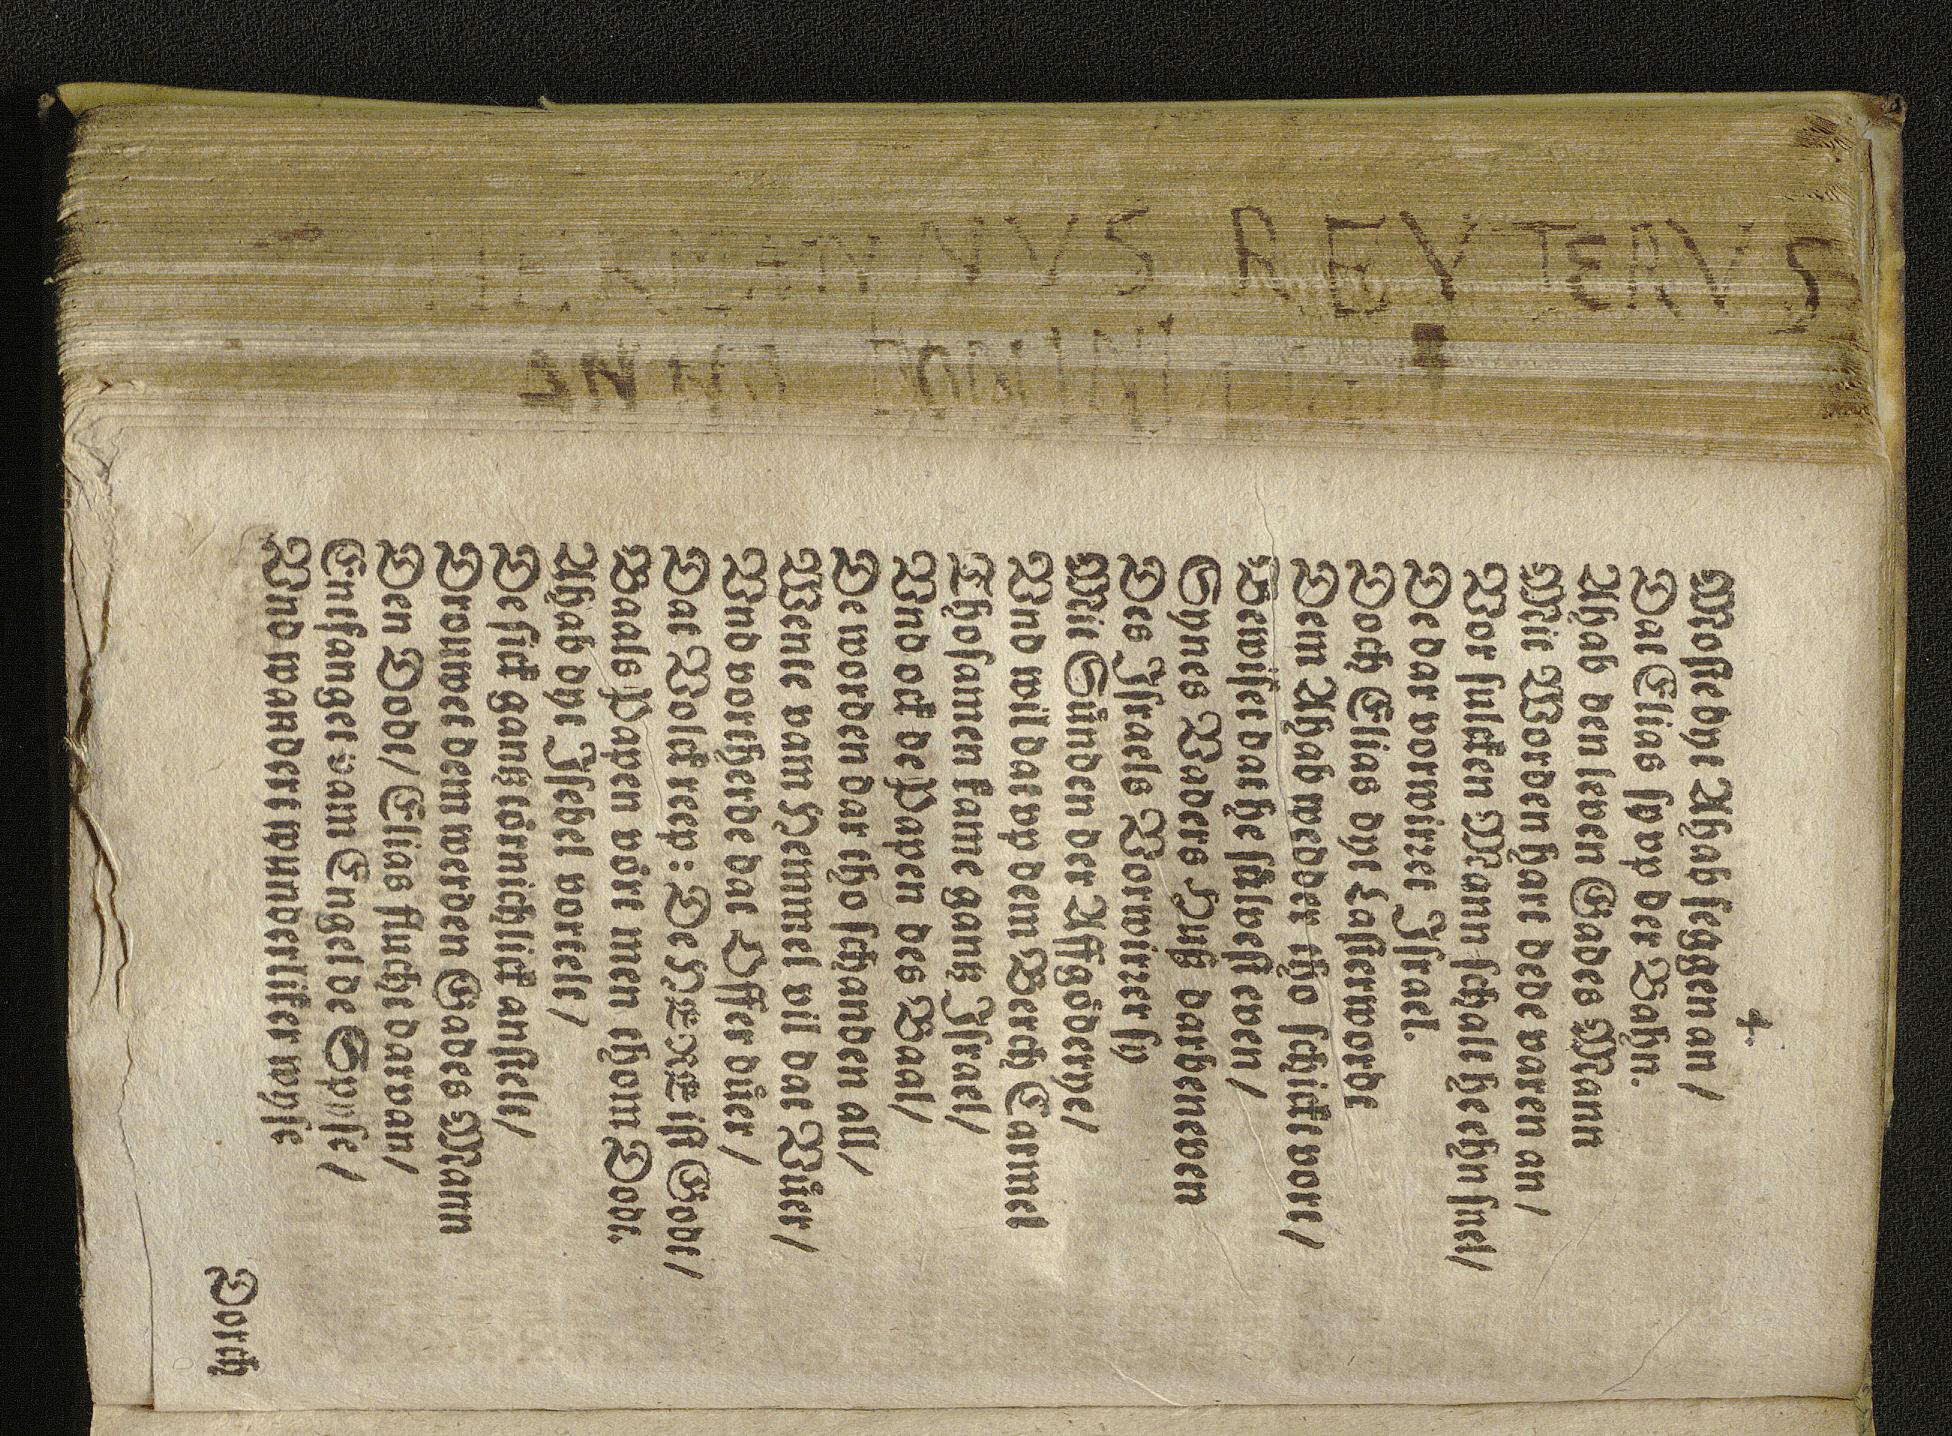 HERMANNVS REXTERVS
ANNO DOMINI
Moste dyt Ahab seggen an/
Dat Elias sy vp der Bahn.
Ahab den leven Gades Mann
Mit Worden hart dede varen an/
Vor sulcken Mann schalt he ehn snel/
De dar vorwirret Israel.
Doch Elias dyt Lasterwordt
Dem Ahab wedder tho schickt vort/
Bewiset dat he sülvest even/
Synes Vaders Huß darbeneven
Des Israels Vorwirrer sy
Mit Sünden der Affgöderye/
Vnd wil dat vp dem Berch Carmel
Thosamen kame gantz Israel/
Vnd ock de Papen des Baal/
De worden dar tho schanden all/
Wente vam Hemmel vil dat Vüer/
Vnd vortherde dat Offer düer/
Dat Volck reep: De HERR ist Godt/
Baals Papen vöret men thom Dodt.
Ahab dyt Isebel vortelt/
De sick gantz törnichlick anstelt/
Drouwet dem werden Gades Mann
Den Dodt/ Elias flucht darvan/
Entfanget vam Engel de Spyse/
Vnd wandert wunderliker wyse
Dorch